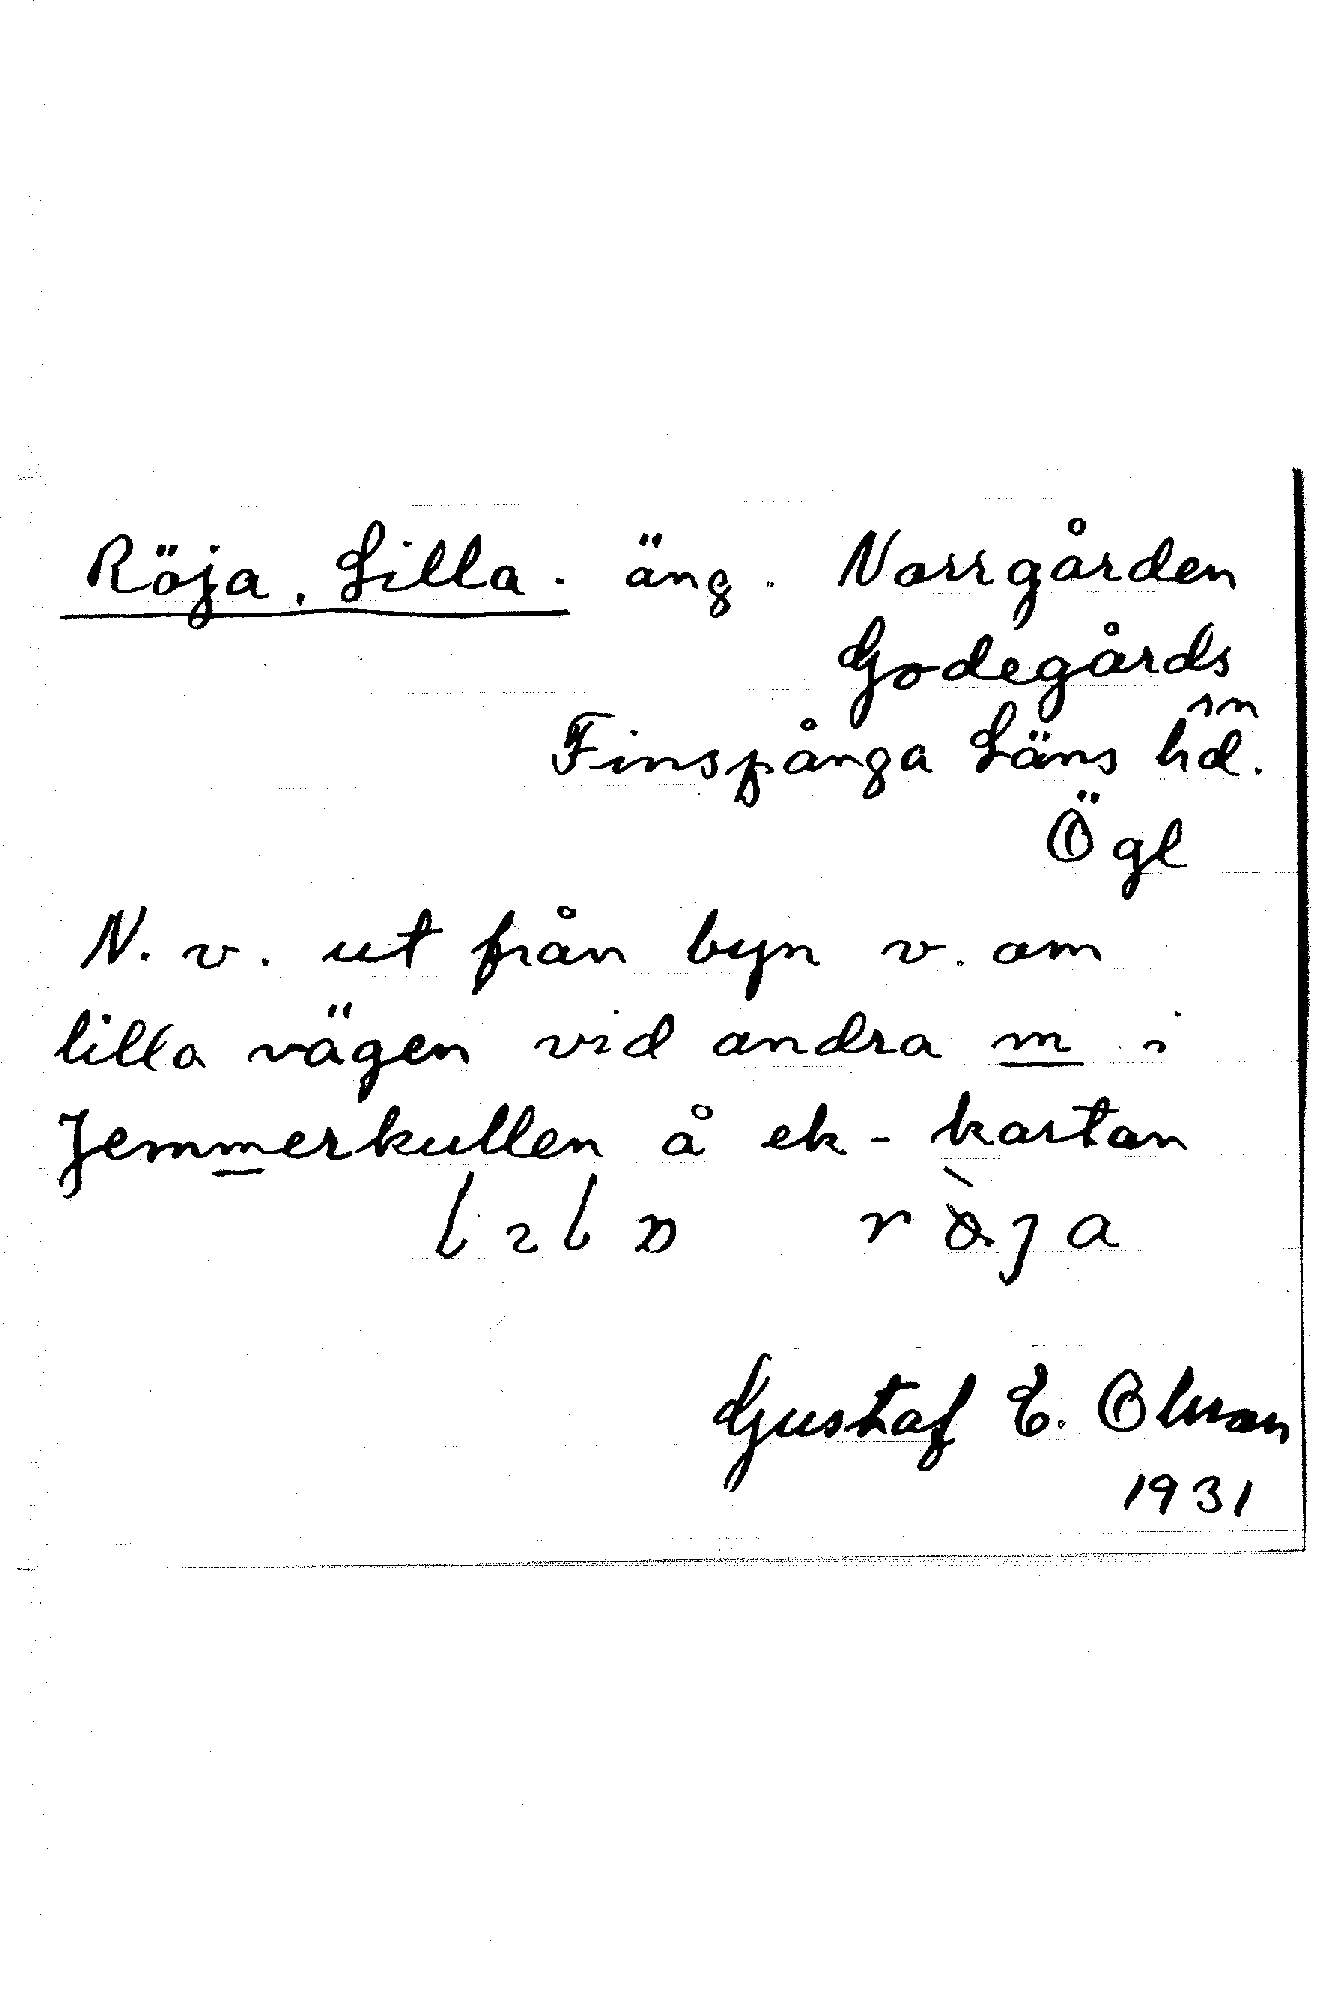 Röja, Lilla. äng. Norrgården
Godegårds
sn
Finspånga Läns hd.
Ögl
N. v. ut från byn v. om
lilla vägen vid andra m i
Jemmerkullen å ek-kartan
Gustaf E.
1931